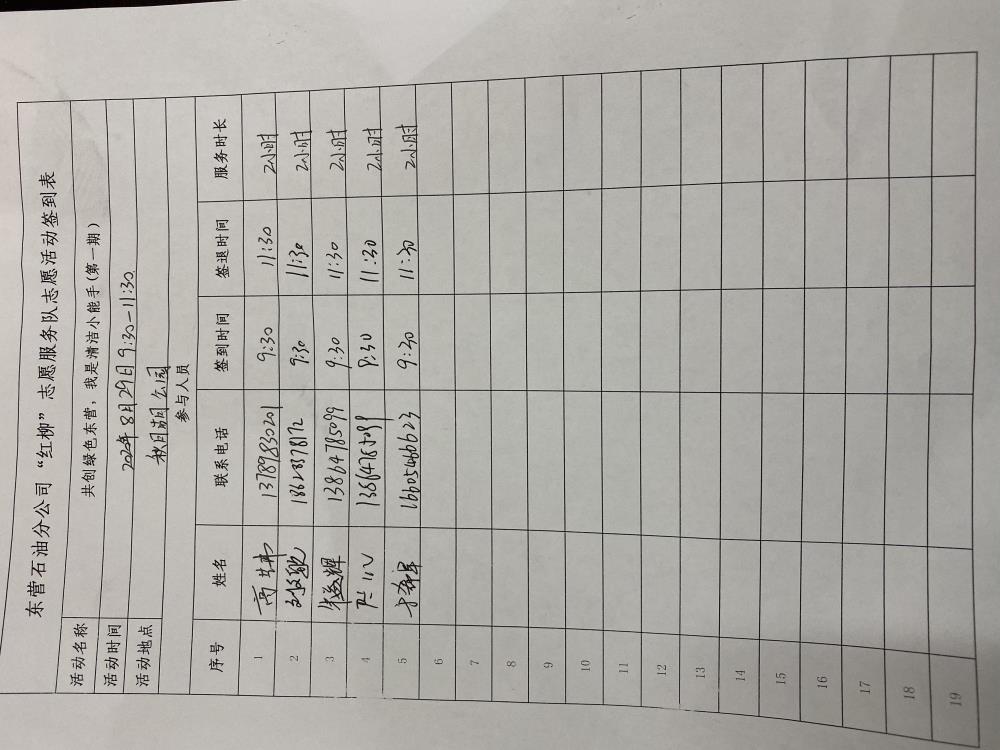 东营石油分公司“红柳”志愿服务队志愿活动签到表
活动名称 共创绿色东营，我是清洁小能手(第一期)
活动时间 8月29日9:30-11:30
活动地点 公园
参与人员
序号 姓名 联系电话 签到时间 签退时间 服务时长
1 高 13789830201 9:30 11:30 2小时
2 18628378172 9:30 11:30 2小时
3 辉 13864785099 9:30 11:30 2小时
4 11:30 2小时
5 16605466623 9:30 11:30 2小时
6
7
8
9
10
11
12
13
14
15
16
17
18
19